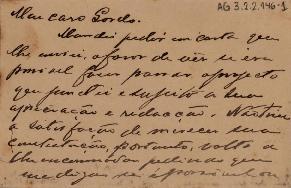 AG 3.2.2.146-1
Meu caro Gordo.
Mandei pedir em carta que
lhe enviei, o favor de vêr se era
possivel fazer passar o projecto
que junctei e sujeito a sua
apreciação e redacção.
a satisfação de merecer sua
portanto, volto a
lhe encommodar pedindo que
me diga se é possivel